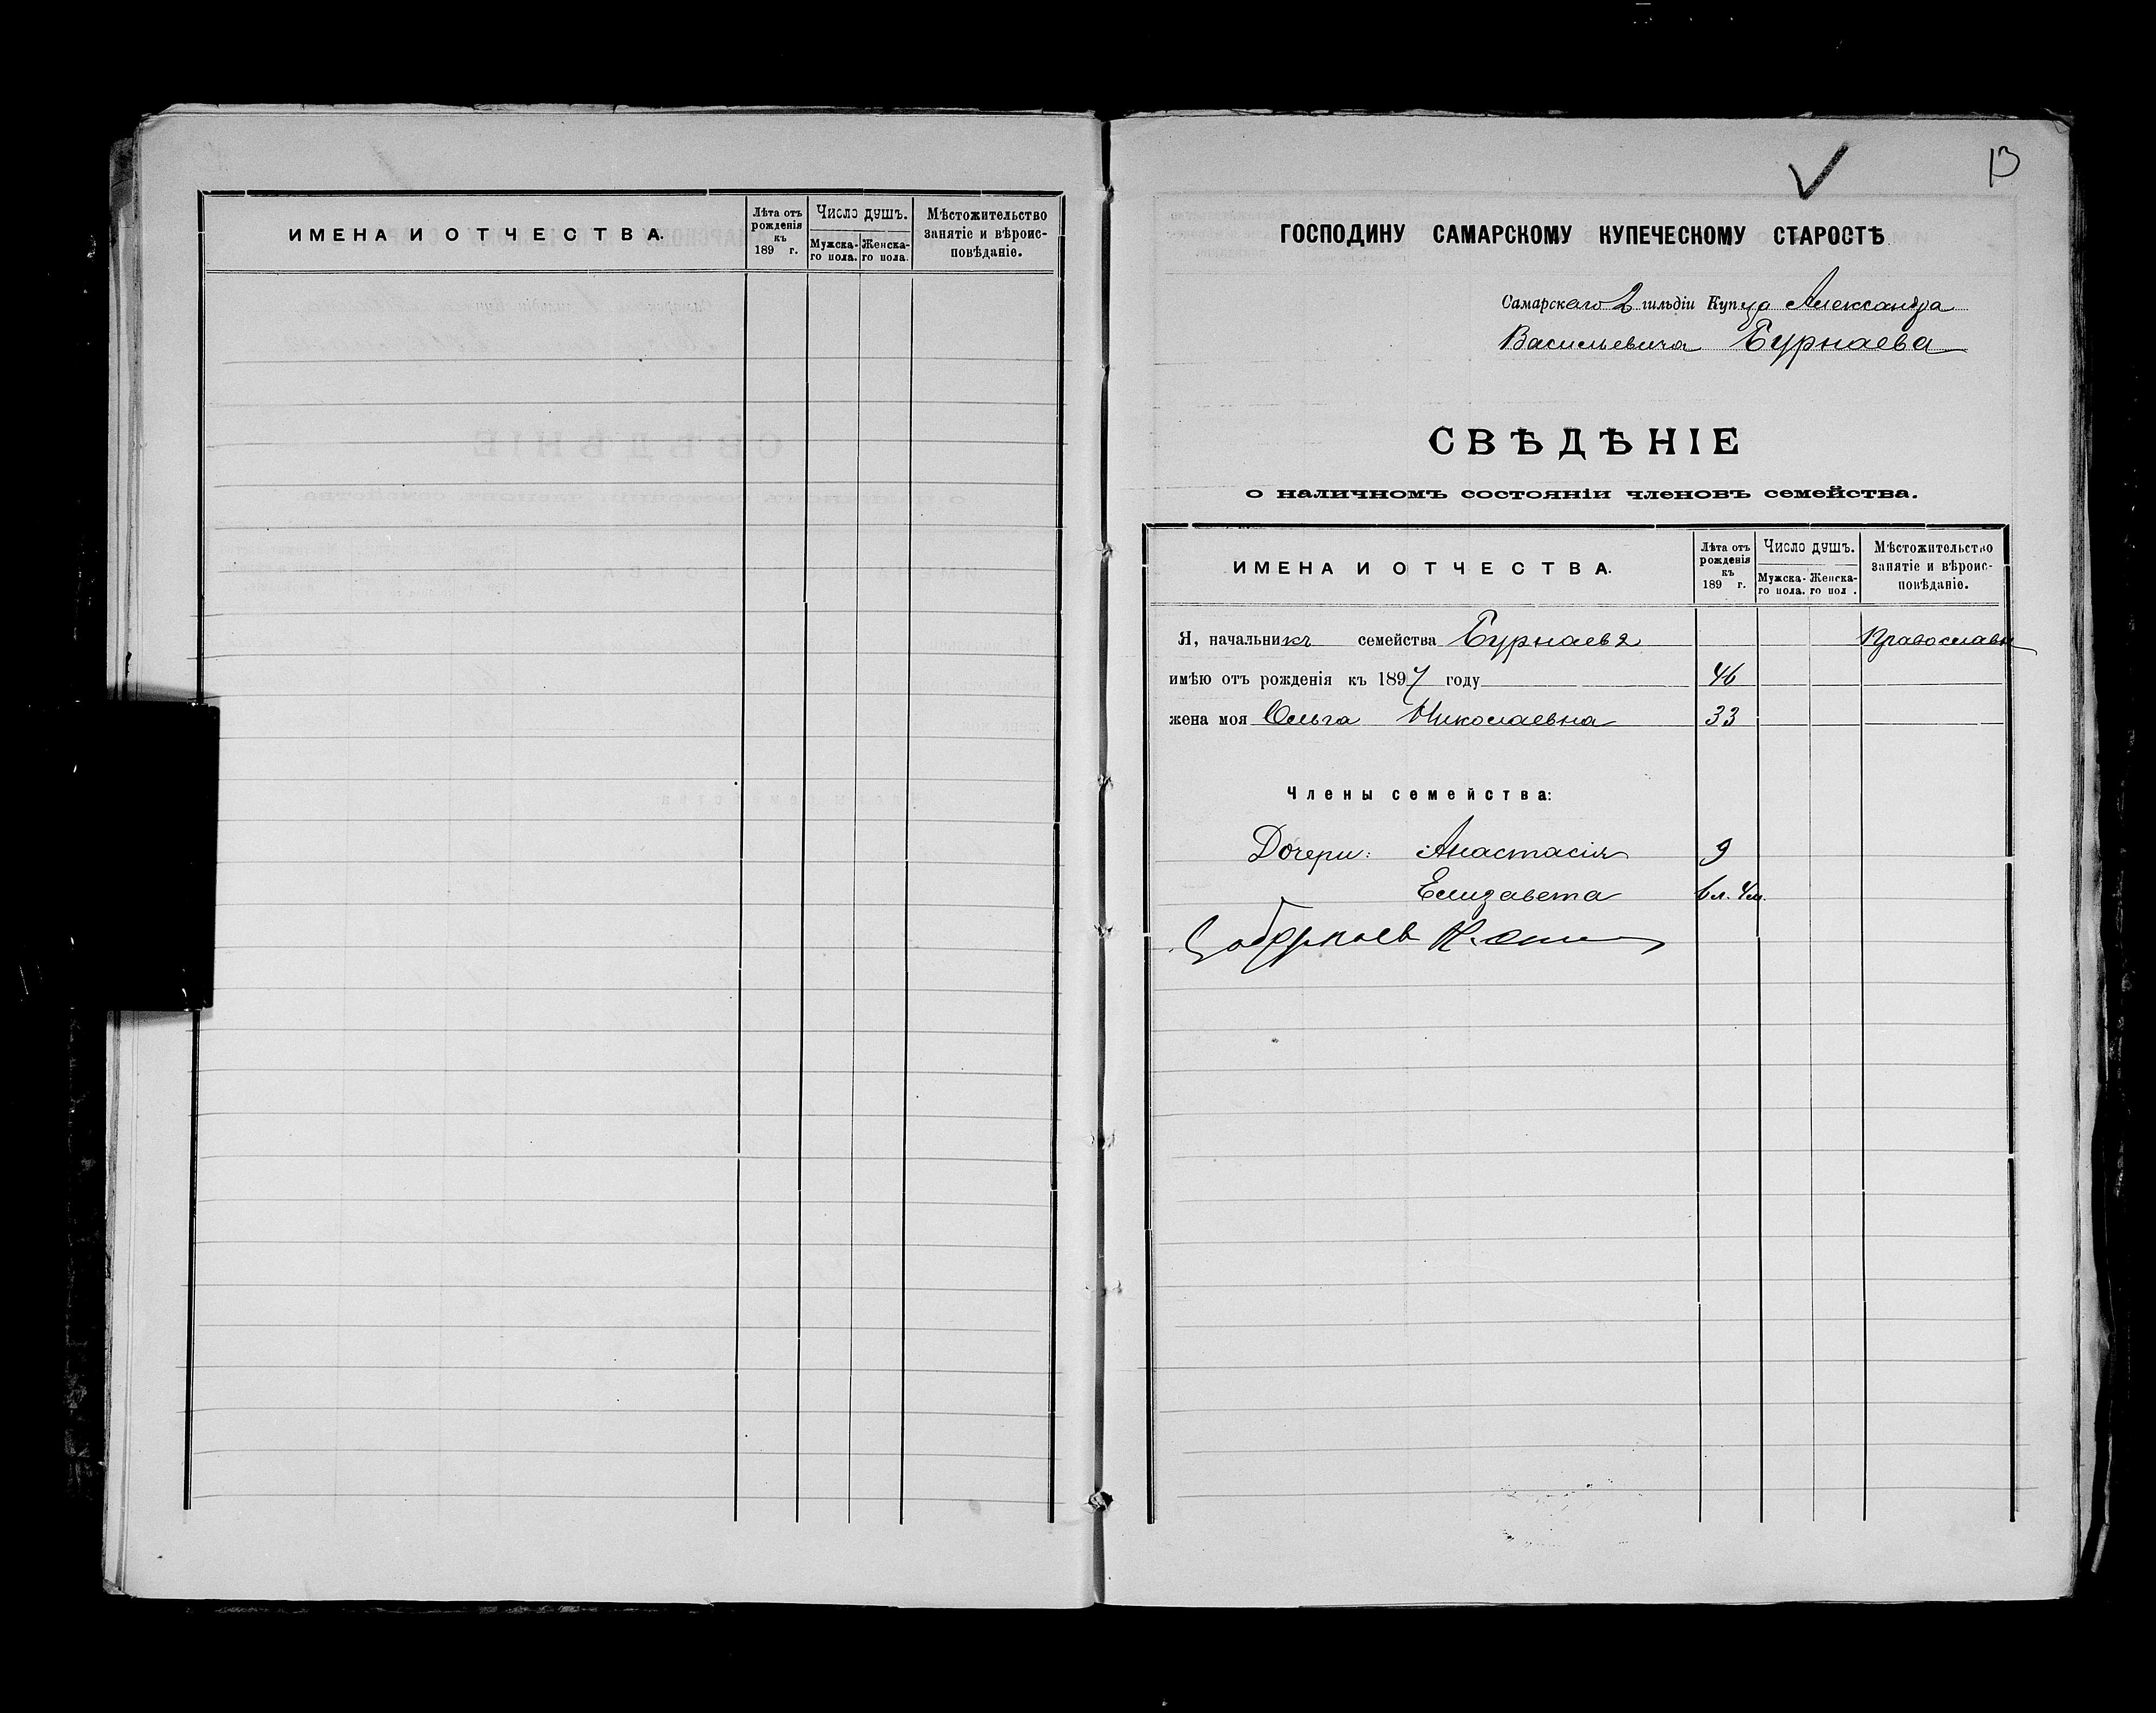 ИМЕНА И ОТЧЕСТВА.
Лѣта отъ рожденія къ 189 г.
Число душъ.
Мужскаго пола.
Женскаго пола.
Мѣстожительство занятіе и вѣроисповѣданіе.
13
ГОСПОДИНУ САМАРСКОМУ КУПЕЧЕСКОМУ СТАРОСТѢ
Самарскаго 2 гильдіи Купца Александра
Васильевича Бурнаева
СВѢДѢНІЕ
о наличномъ состояніи членовъ семейства.
ИМЕНА И ОТЧЕСТВА.
Лѣта отъ рожденія къ 189 г.
Число душъ.
Мужскаго пола.
Женскаго пол .
Мѣстожительство занятіе и вѣроисповѣданіе.
Я, начальникъ семейства Бурнаевъ Православн
имѣю отъ рожденія къ 1897 году 46
жена моя Ольга Николаевна 33
Члены семейства:
Дочери: Анастасія 9
Елизавета 6 л. 4 м.